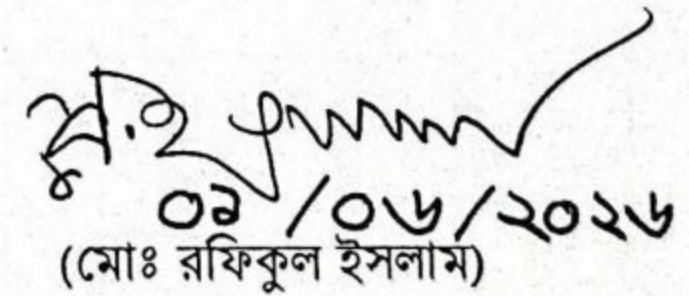 ০১/০৬/২০২৬
(মোঃ রফিকুল ইসলাম)